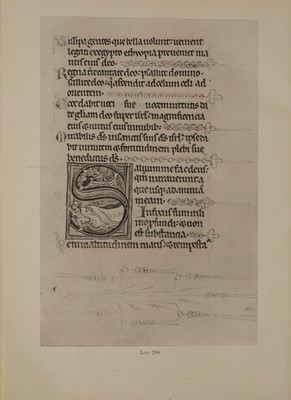 Dissipa gentes que bella volunt: uenient
legati ex egypto ethyopia preueniet ma
nus eius deo.
Regna terre cantate deo: psallite domino.
psallite deo: qi ascendit ad celum celi ad
orientem.
Ecce dabit uoci sue uocem uirtutis da
te gliam deo super isrl: magnificencia
eius & uirtus eius in nubibus.
Mirabilis ds in scis suis ds isrl ipse da
bit uirtutem & fortitudinem plebi sue
benedictus ds.
Saluum me fac deus:
qm intrauerunt a
que usq; ad animam
meam.
Infixus sum in li
mo profundi: & non
est substancia.
Veni in altitudinem maris: & tempesta
Lot 284